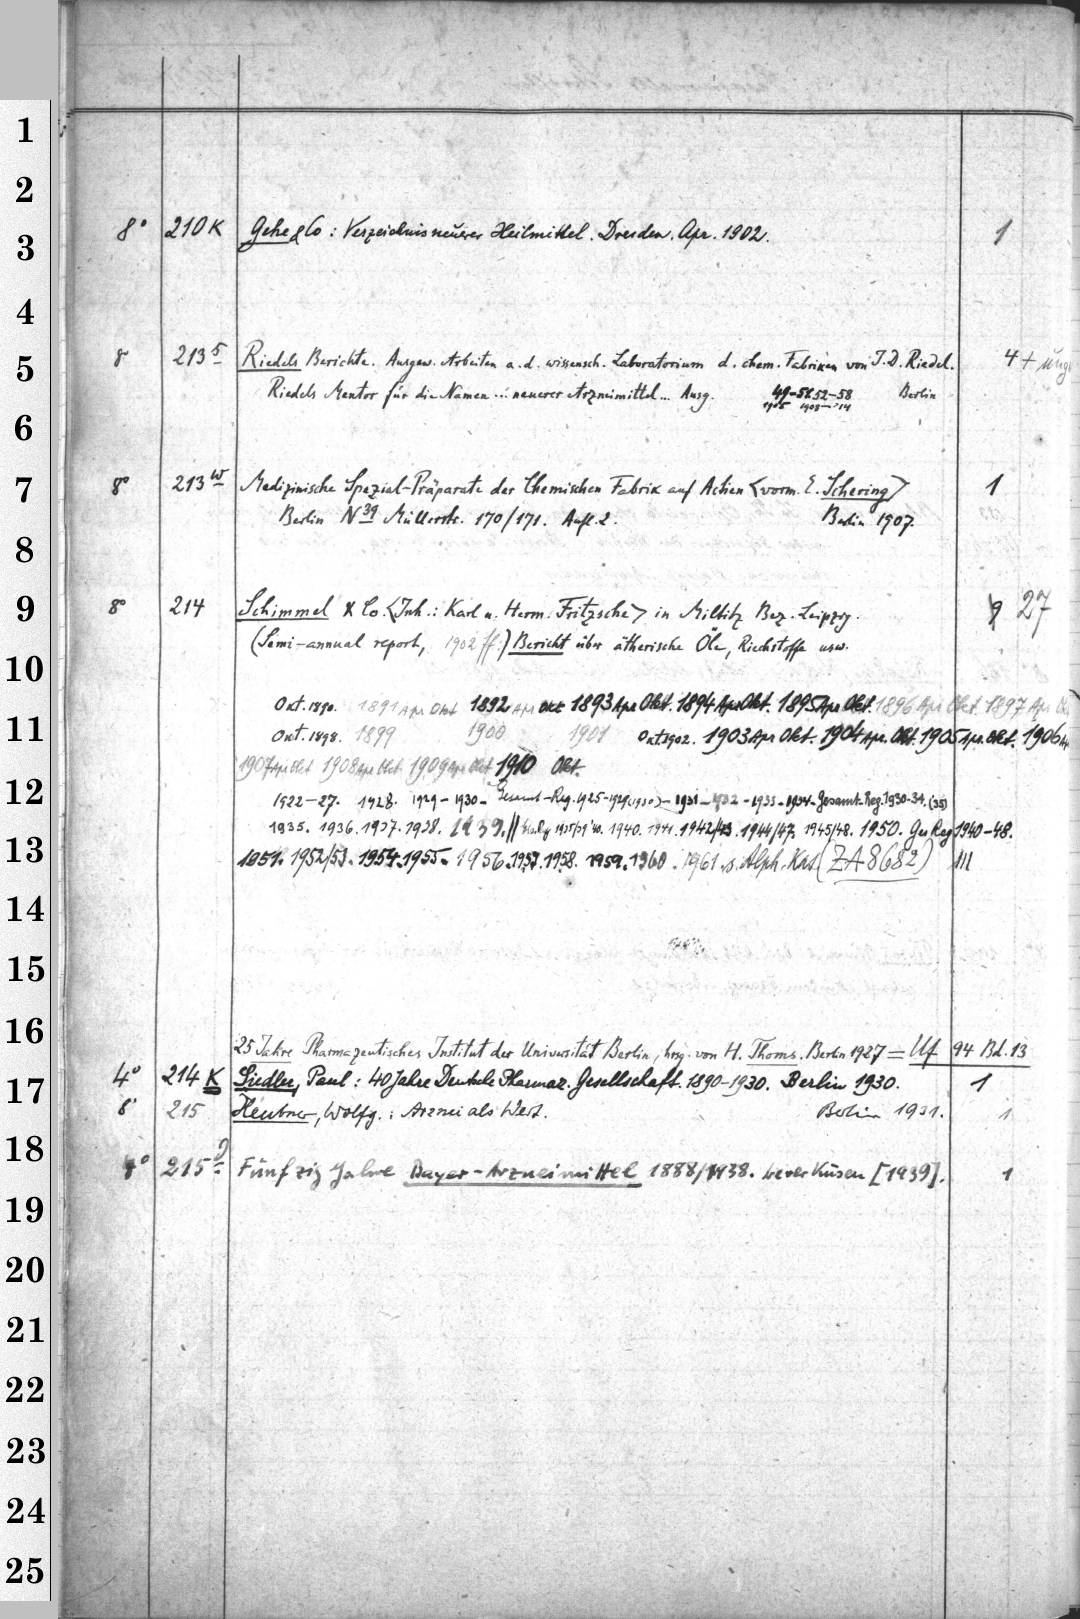 8° 210K Gehe & Co: Verzeichnis neuerer Heilmittel. Dresden, Apr. 1902. 1
8° 213 5 Riedels Berichte. Ausgew. Arbeiten a. d. wissensch. Laboratorium d. chem. Fabriken von J. D. Riedel. 4 +
Riedels Mentor für die Namen ... neuerer Arzneimittel... Ausg. 49-51.52-58 Berlin
1905 1908-'14
8° 213 w Medizinische Spezial-Präparate der Chemischen Fabrik auf Actien <vorm. E. Schering> 1
Berlin N 39 Müllerstr. 170/171. Aufl. 2. Berlin 1907.
8° 214 Schimmel & Co. <Inh.: Karl u. Herm. Fritzsche> in Miltitz Bez. Leipzig. 9 27
(Semi-annual report, 1902 ff.) Bericht über ätherische Öle, Riechstoffe usw.
Okt. 1890. 1891 Apr Okt 1892 Apr Okt 1893 Apr Okt. 1894 Apr Okt. 1895 Apr Okt. 1896 Apr Okt. 1897 Apr Ok
Okt. 1898. 1899 1900 1901 Okt 1902. 1903 Apr Okt. 1904 Apr. Okt. 1905 Apr. Okt. 1906
1907 Apr Okt 1908 Apr Okt 1909 Apr Okt 1910 Okt.
1922-27. 1928. 1929-1930- Gesamt-Reg. 1925-1929 (1930)- 1931- 1932 -1933-1934- Gesamt-Reg. 1930-34. (35)
1935. 1936. 1937. 1938. 1939. // 1940. 1941. 1942/43. 1944/47. 1945/48. 1950. Ges Reg 1940-48.
1951. 1952/53. 1954. 1955. 1956. 1957. 1958. 1959. 1960. 1961 s. Alph. Kat (ZA 8682) III
25 Jahre Pharmazeutisches Institut der Universität Berlin, hrg. von H. Thoms. Berlin 1927 = Uf 94 Bd. 13
4° 214 K Siedler, Paul: 40 Jahre Deutsche Pharmaz. Gesellschaft. 1890-1930. Berlin 1930. 1
8° 215 Heubner, Wolfg.: Arznei als Wert. Berlin 1931. 1
4° 215 Fünfzig Jahre Bayer-Arzneimittel 1888/1938. Leverkusen [1939]. 1